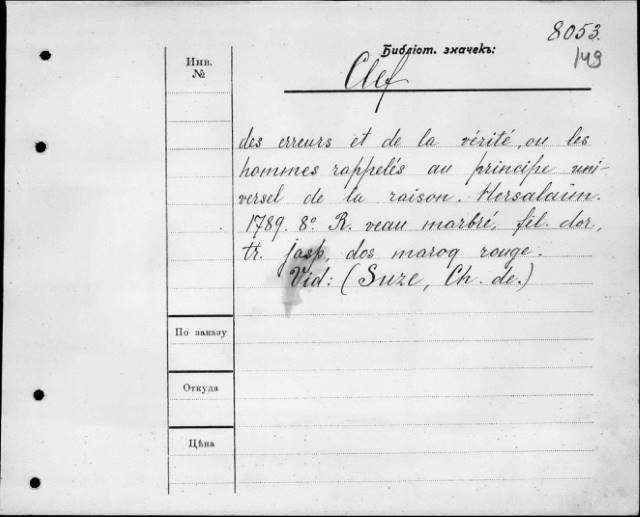 8053.
149
Библіот. значекъ:
Clef
Инв.
№
des erreurs et de la vérité, ou les
hommes rappelés au principe uni-
versel de la raison. Hersalaim.
1789. 8º. R. veau marbré, fil. dor,
tr. jasp, dos maroq rouge.
Vid: (Suze, Ch. de.)
По заказу
Откуда
Цѣна